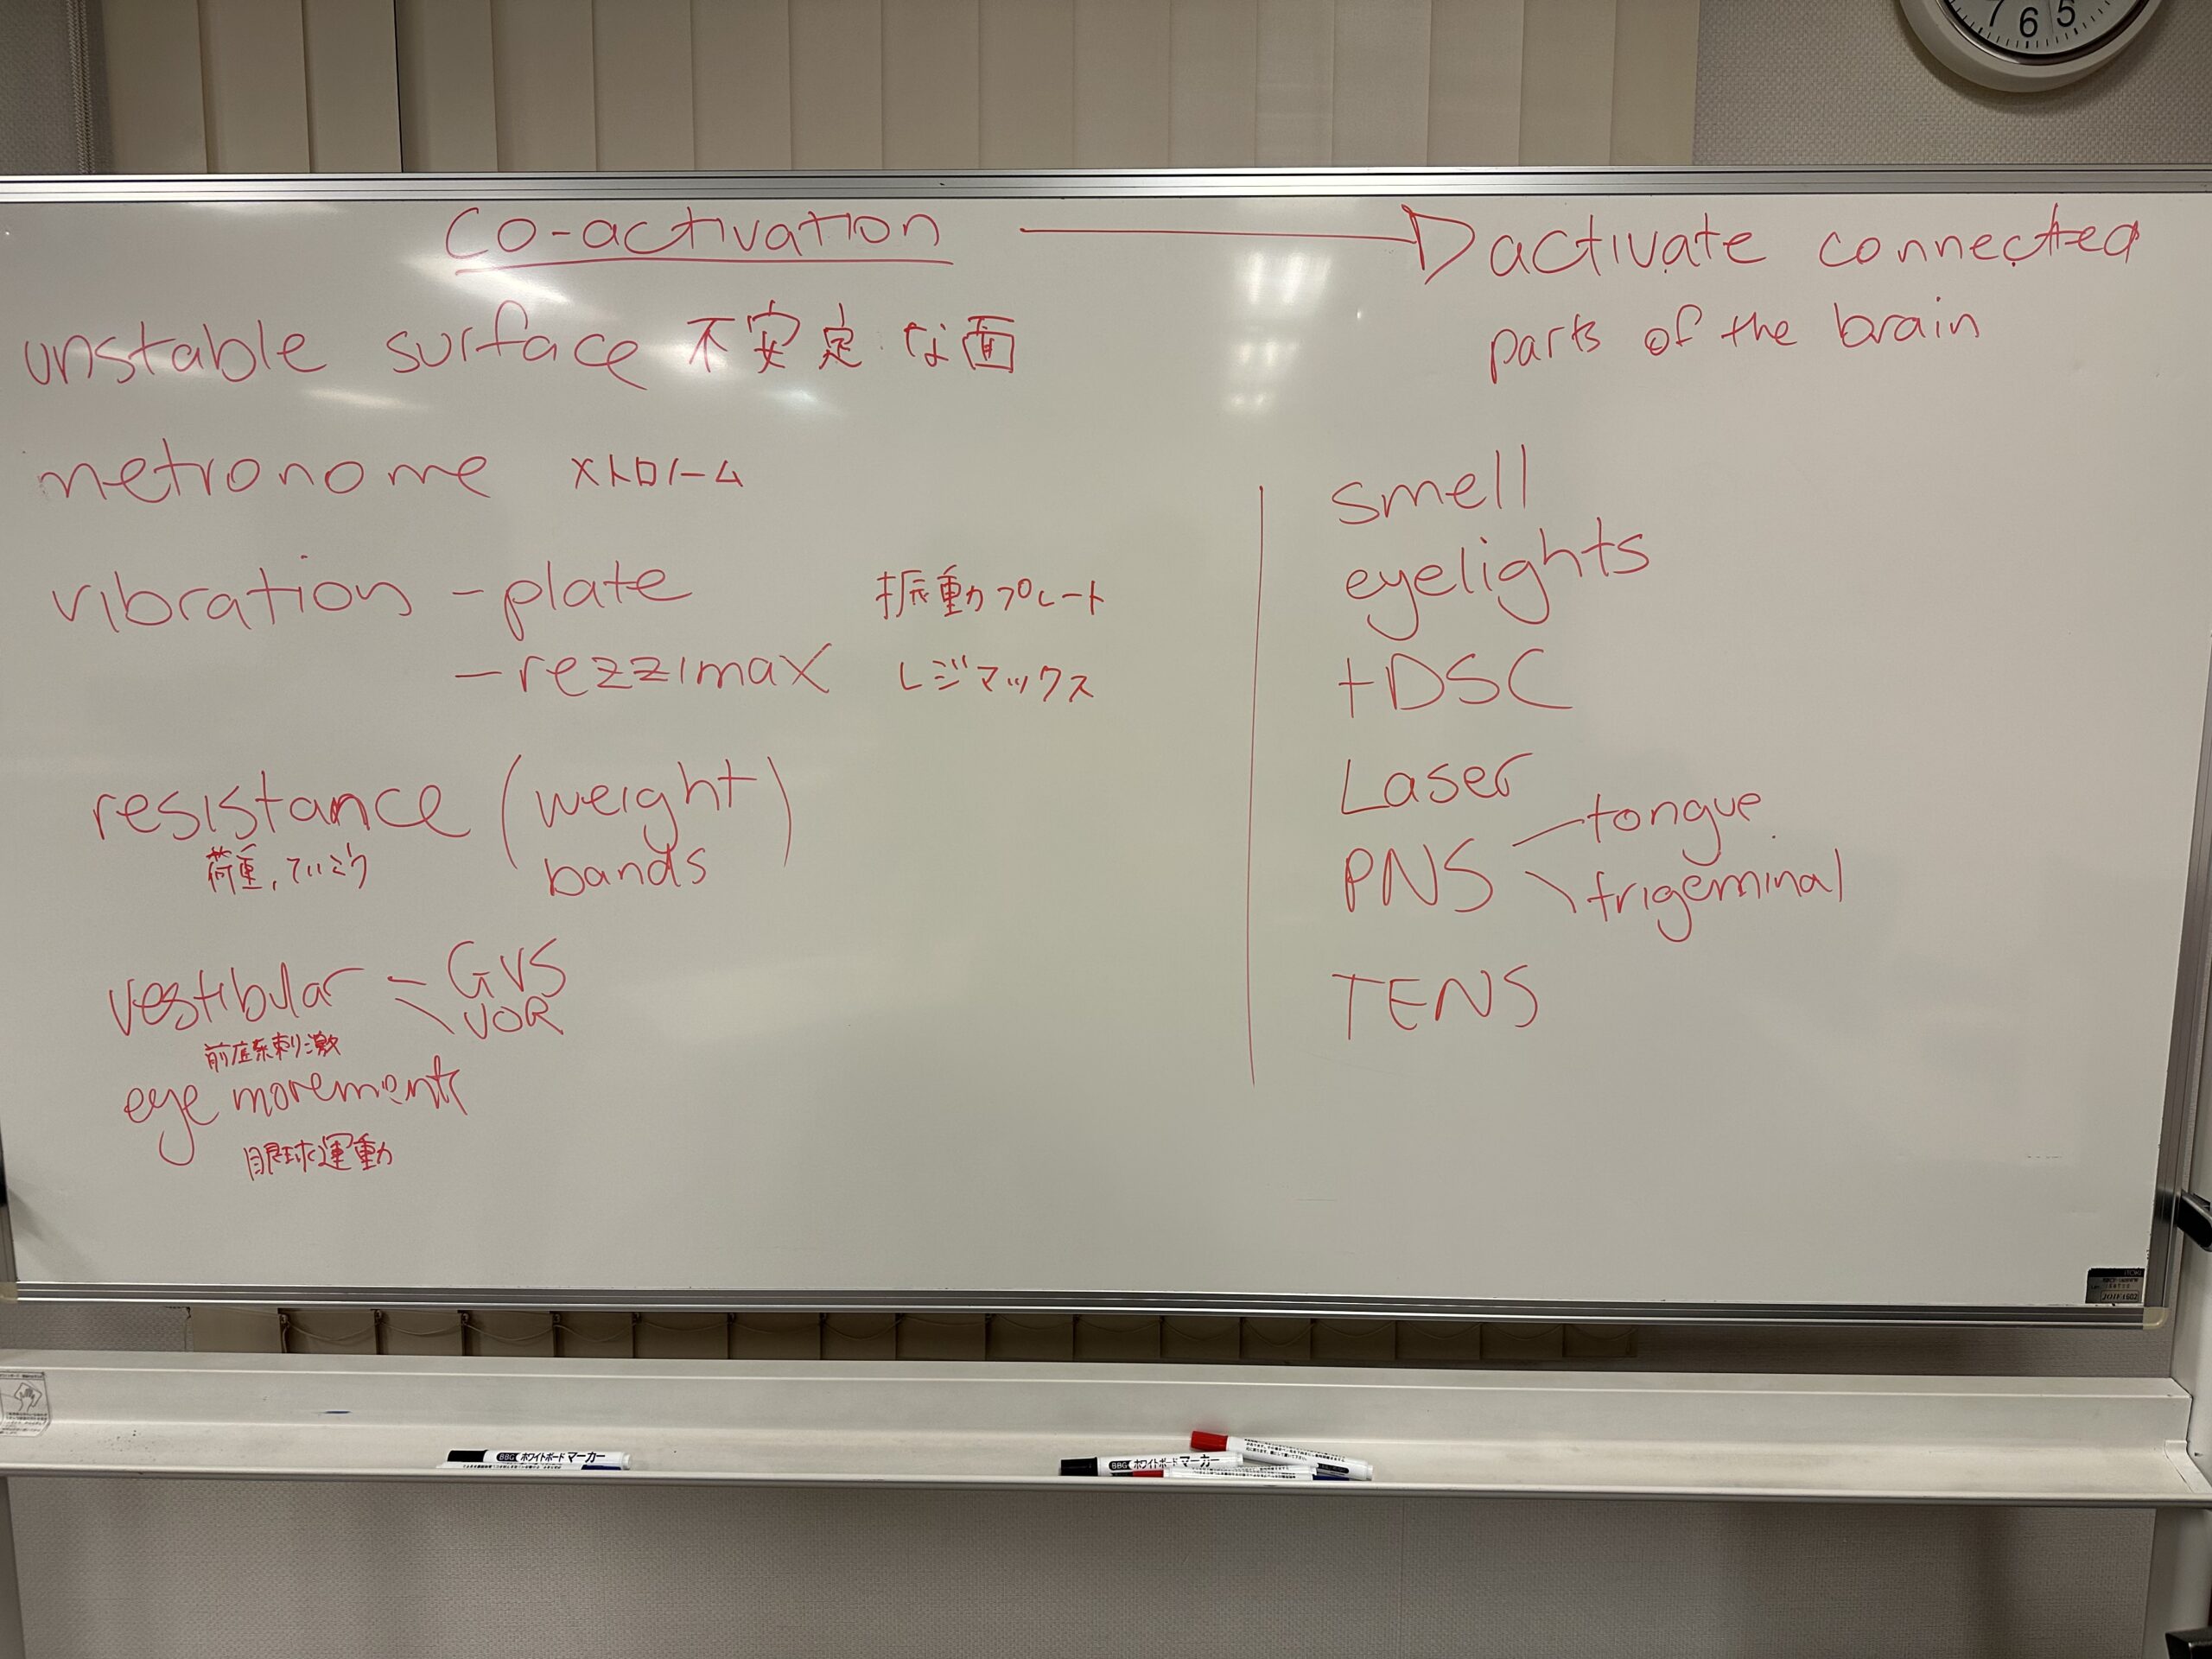 co-activation ——▷ activate connected
parts of the brain
unstable surface 不安定な面
metronome メトロノーム
vibration - plate 振動プレート
- rezzimax レジマックス
resistance (weight
bands)
荷重, ていこう
vestibular - GVS
VOR
前庭系刺激
eye movements
眼球運動
smell
eyelights
tDSC
Laser
PNS - tongue
trigeminal
TENS
7 6 5
BBG ホワイトボードマーカー
BBG ホワイトボードマーカー